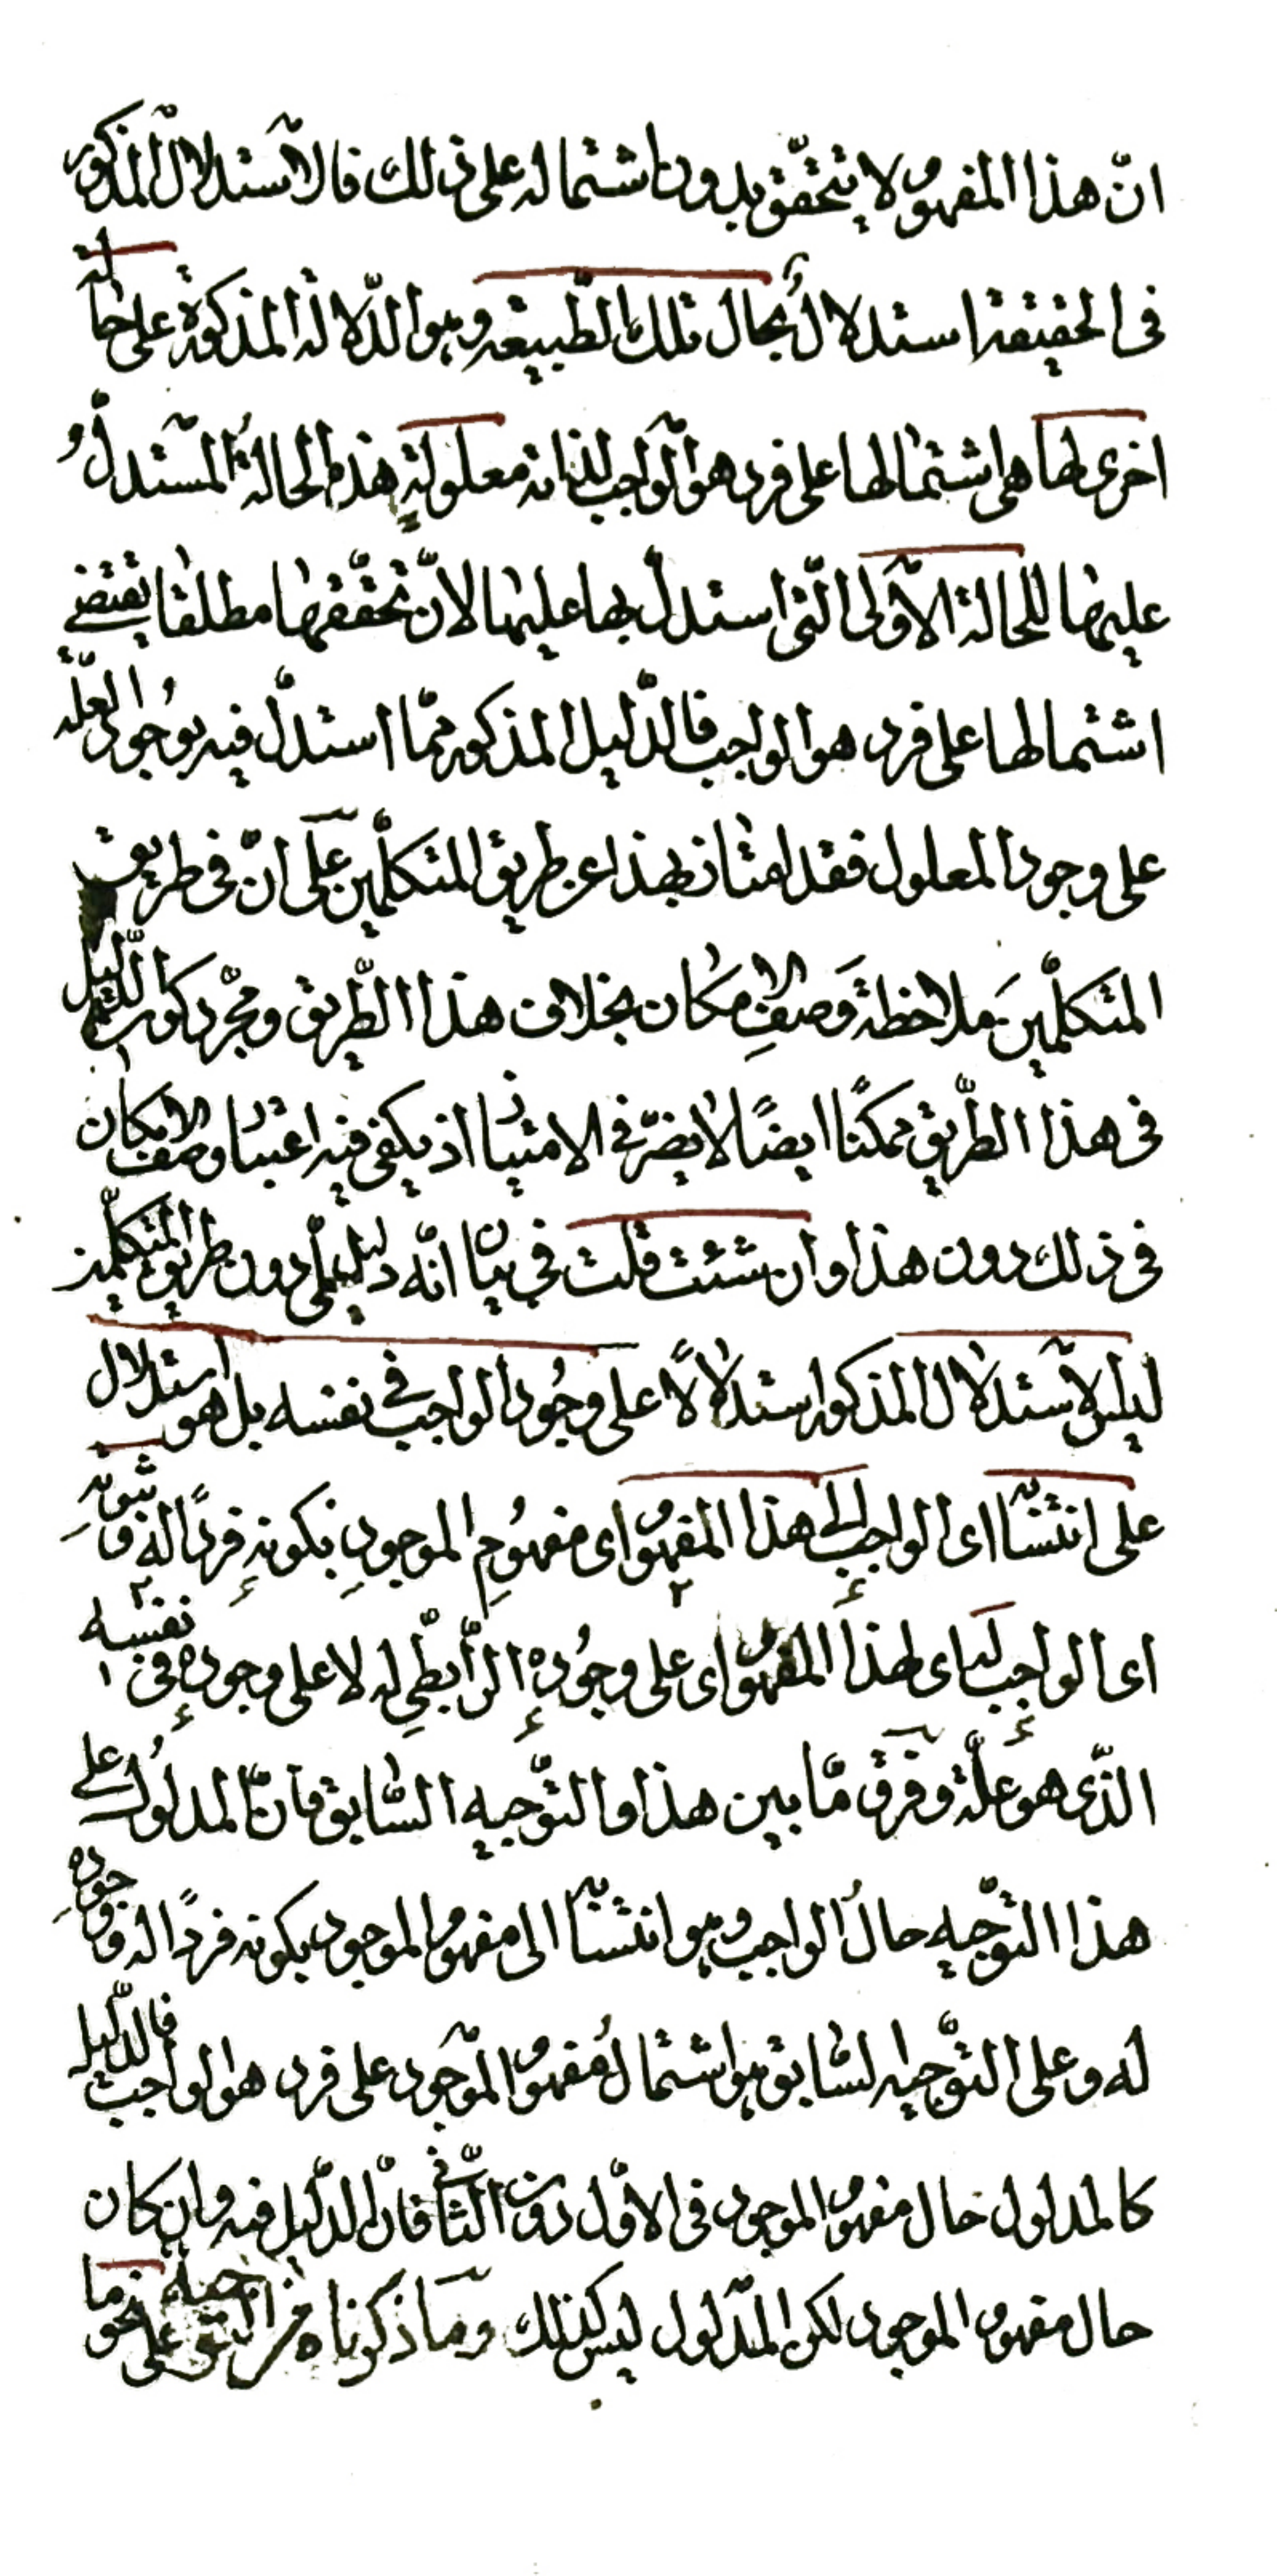 انّ هذا المفهوم لا يتحقّق بدون اشتماله على ذلك فالاستدلال المذكور
فى الحقيقة استدلالٌ بحال تلك الطّبيعة وهو الدّلالة المذكورة على حالة
اخرى لها هى اشتمالها على فرد هو الواجب لذاته معلولةٍ هذه الحالةُ المستدلُّ
عليها للحالة الاَولى الّتى استدلّ بها عليها لانّ تحقّقها مطلقا يقتضے
اشتمالها على فرد هو الواجب فالدّليل المذكور ممّا استدلّ فيه بوُجود العلّة
على وجود المعلول فقد امتاز بهذا عن طريق المتكلّمين على انّ فى طريق
المتكلّمين ملاحظةَ وَصفِ الامكان بخلاف هذا الطّريق ومجّرد كون الدّليل
فى هذا الطّريق ممكنًا ايضًا لا يضرّ فى الامتياز اذ يكفى فيه اعتبار وصف الامكان
فى ذلك دون هذا وان شئت قلت فى بيان انّه دليل لمّى دون طريق المتكلّمين
ليس الاستدلال المذكور استدلالًا على وجُود الواجب فى نفسه بل هو استدلال
على انتسابه اى الواجب الى هذا المفهوم اى مفهُومِ الموجودِ بكونهِ فردًا له وثبوتهِ
اى الواجب له اى لهذا المفهوم اى على وجُودهِ الرّابطّىِ له لا على وجودهِ فى نفسه
الذّى هو علّة وفرق مّا بين هذا والتوّجيه السّابق فانّ المدلُول على
هذا التوّجيه حالُ الواجب وهو انتسابه الى مفهوم الموجود بكونه فردًا له ووجودهِ
له وعلى التوّجيه السّابق هو اشتمالُ مفهوم الموجود على فرد هو الواجب فالدّليل
كالمدلول حال مفهوم الموجود فى الاوّل دون الثّانى فانّ الدّليل فيه وان كان
حال مفهوم الموجود لكن المدلول ليس كذلك وما ذكرناه من التوجيه على نحو ما